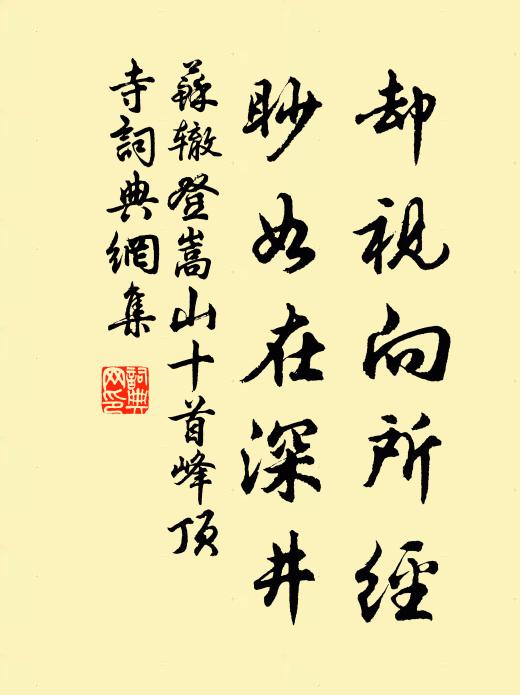 却视向所經
眇如在深井
蘇辙登嵩山十首峰顶
寺詞典網集
詞典網印